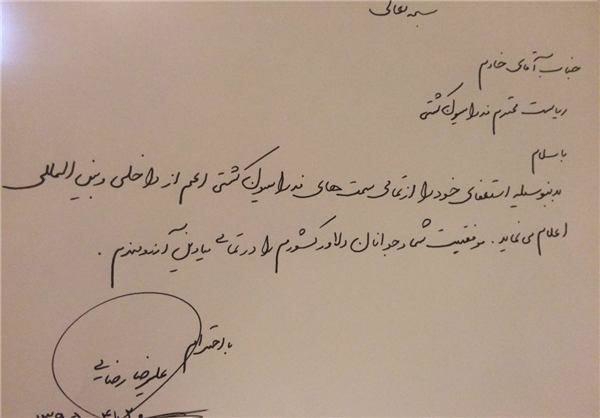 بسمه تعالی
جناب آقای خادم
ریاست محترم فدراسیون کشتی
با سلام
بدینوسیله استعفای خود را از تمامی سمت های فدراسیون کشتی اعم از داخلی و بین المللی
اعلام می نماید. موفقیت شما و جوانان دلاور کشورم را در تمامی میادین آرزومندم.
با احترام
علیرضا رضایی